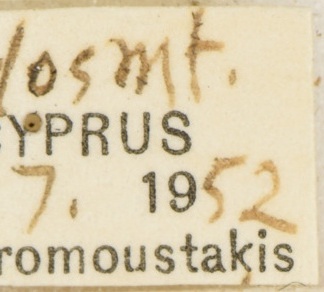 losmt.
CYPRUS
7. 1952
romoustakis